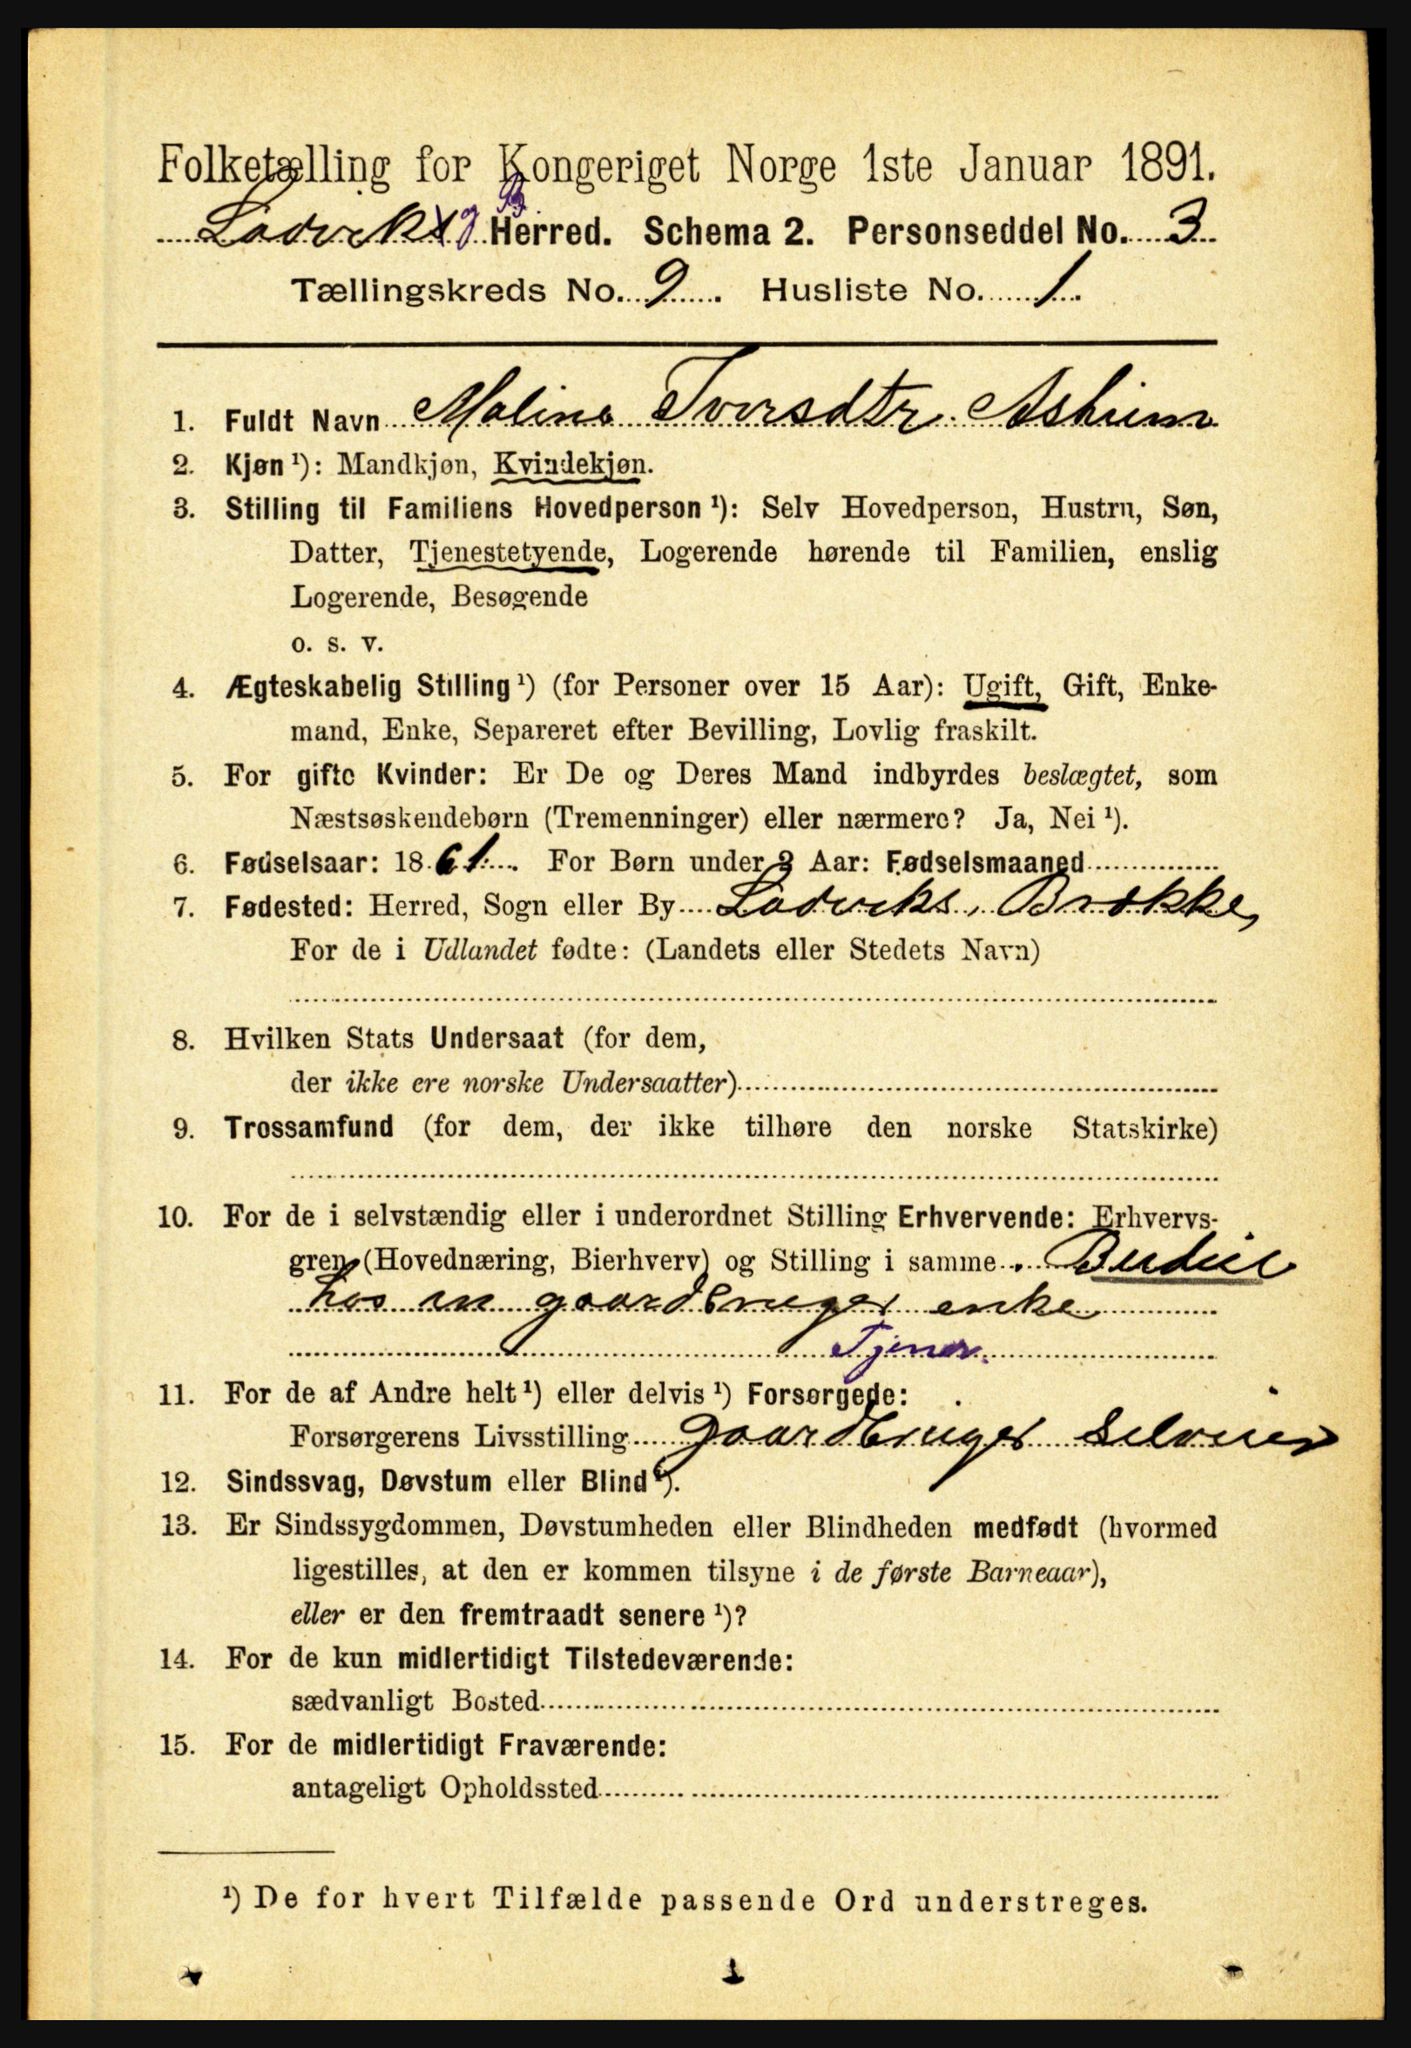 Folketælling for Kongeriget Norge 1ste Januar 1891.
Ladviks og B. Herred. Schema 2. Personseddel No. 3
Tællingskreds No. 9. Husliste No. 1.
1. Fuldt Navn Maline Iversdtr. Askim
2. Kjøn ¹): Mandkjøn, Kvindekjøn.
3. Stilling til Familiens Hovedperson ¹): Selv Hovedperson, Hustru, Søn,
Datter, Tjenestetyende, Logerende hørende til Familien, enslig
Logerende, Besøgende
o. s. v.
4. Ægteskabelig Stilling ¹) (for Personer over 15 Aar): Ugift, Gift, Enke-
mand, Enke, Separeret efter Bevilling, Lovlig fraskilt.
5. For gifte Kvinder: Er De og Deres Mand indbyrdes beslægtet, som
Næstsøskendebørn (Tremenninger) eller nærmere? Ja, Nei ¹).
6. Fødselsaar: 1861. For Børn under 2 Aar: Fødselsmaaned
7. Fødested: Herred, Sogn eller By Ladviks, Brække,
For de i Udlandet fødte: (Landets eller Stedets Navn)
8. Hvilken Stats Undersaat (for dem,
der ikke ere norske Undersaatter)
9. Trossamfund (for dem, der ikke tilhøre den norske Statskirke)
10. For de i selvstændig eller i underordnet Stilling Erhvervende: Erhvervs-
gren (Hovednæring, Bierhverv) og Stilling i samme. Budeie
hos en gaardbruger enke
Tjener.
11. For de af Andre helt ¹) eller delvis ¹) Forsørgede:
Forsørgerens Livsstilling gaardbruger selveier
12. Sindssvag, Døvstum eller Blind ¹).
13. Er Sindssygdommen, Døvstumheden eller Blindheden medfødt (hvormed
ligestilles, at den er kommen tilsyne i de første Barneaar),
eller er den fremtraadt senere ¹)?
14. For de kun midlertidigt Tilstedeværende:
sædvanligt Bosted
15. For de midlertidigt Fraværende:
antageligt Opholdssted
¹) De for hvert Tilfælde passende Ord understreges.
1